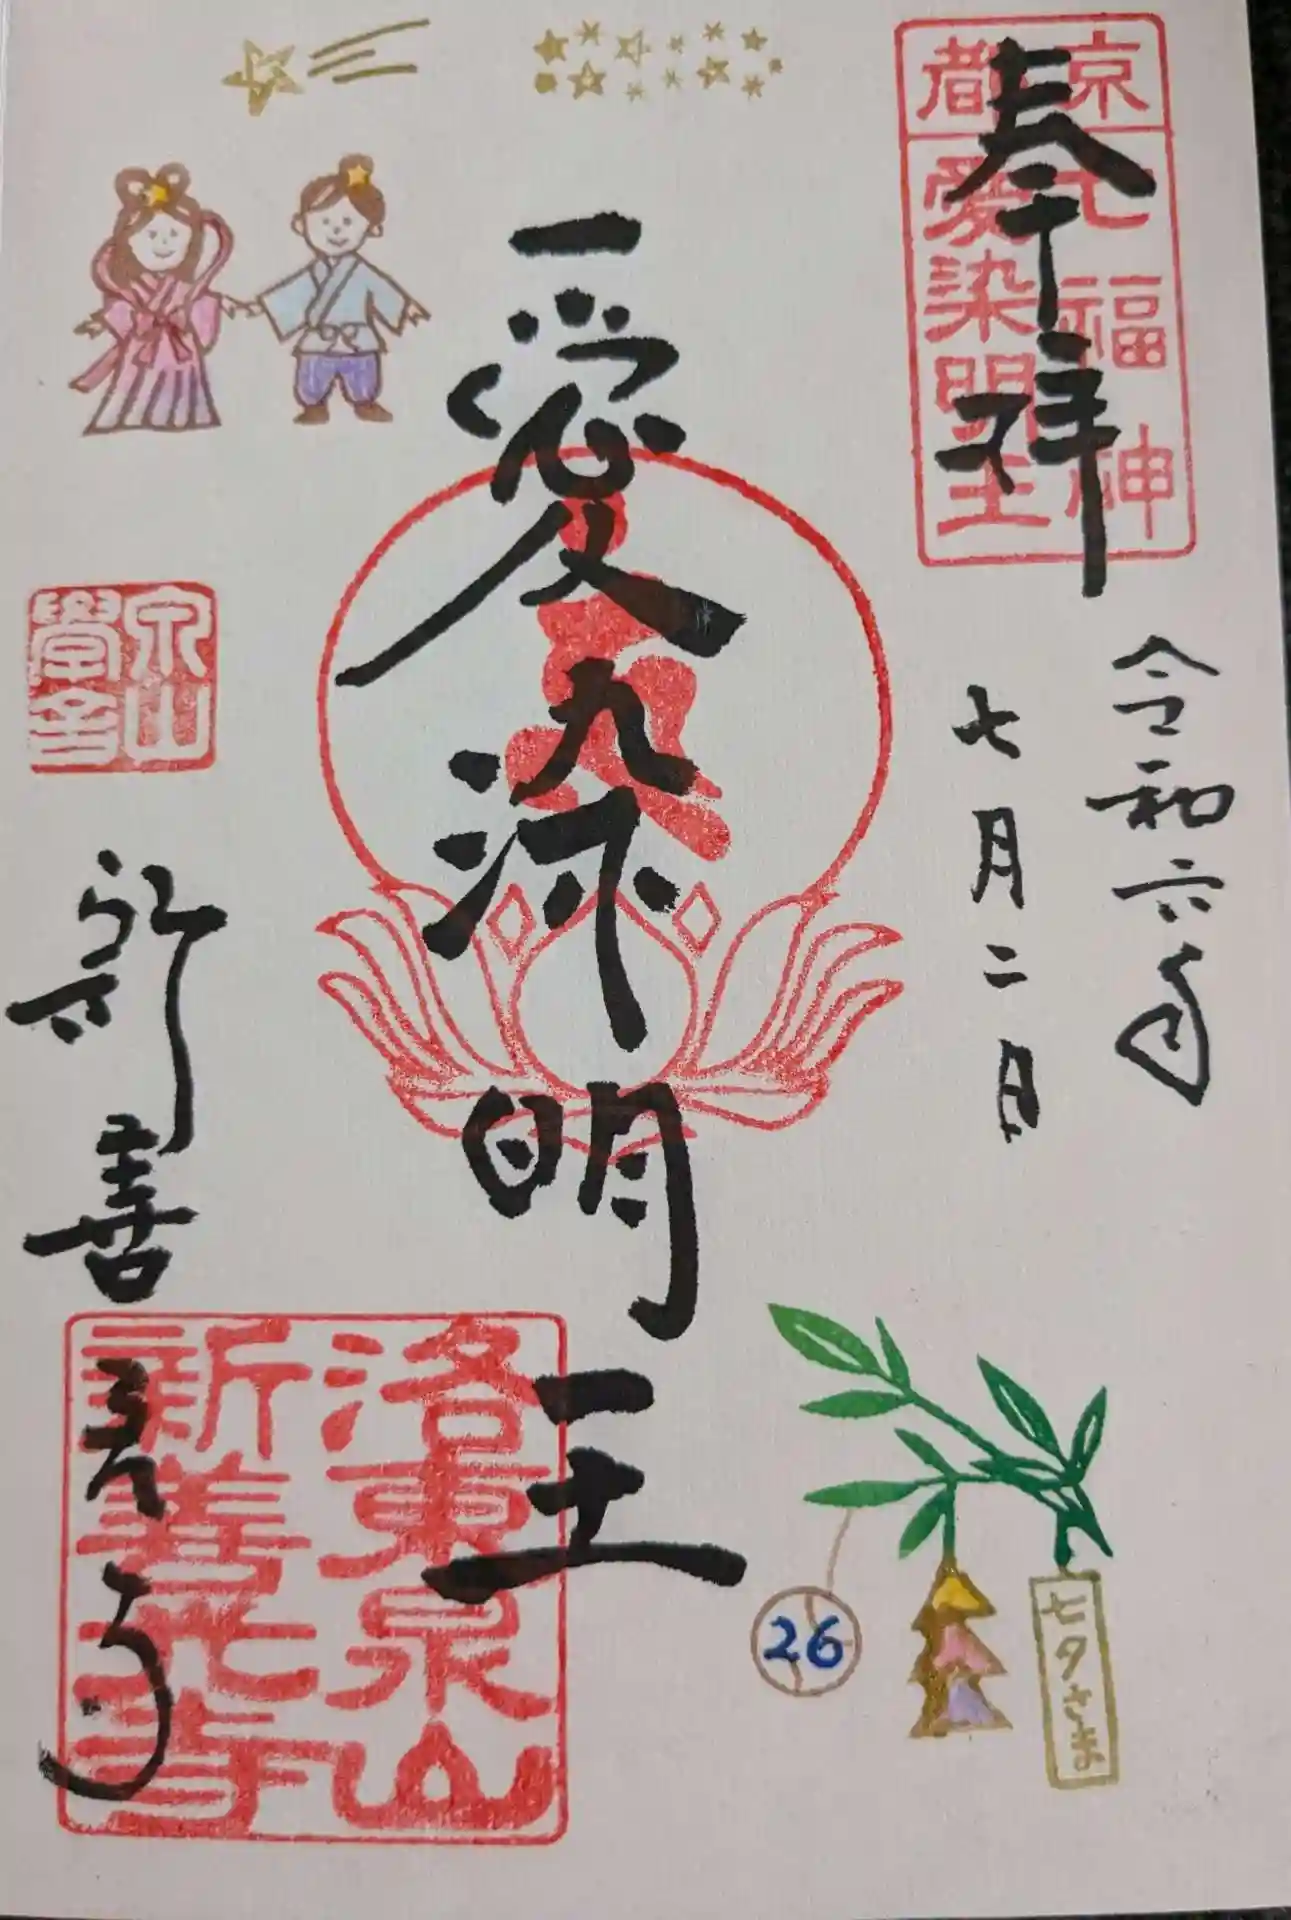 奉拝
京都
七福神
愛染明王
令和六年
七月二日
一愛染明王
泉山
新善光寺
洛東泉山
新善光寺
七夕さま
26